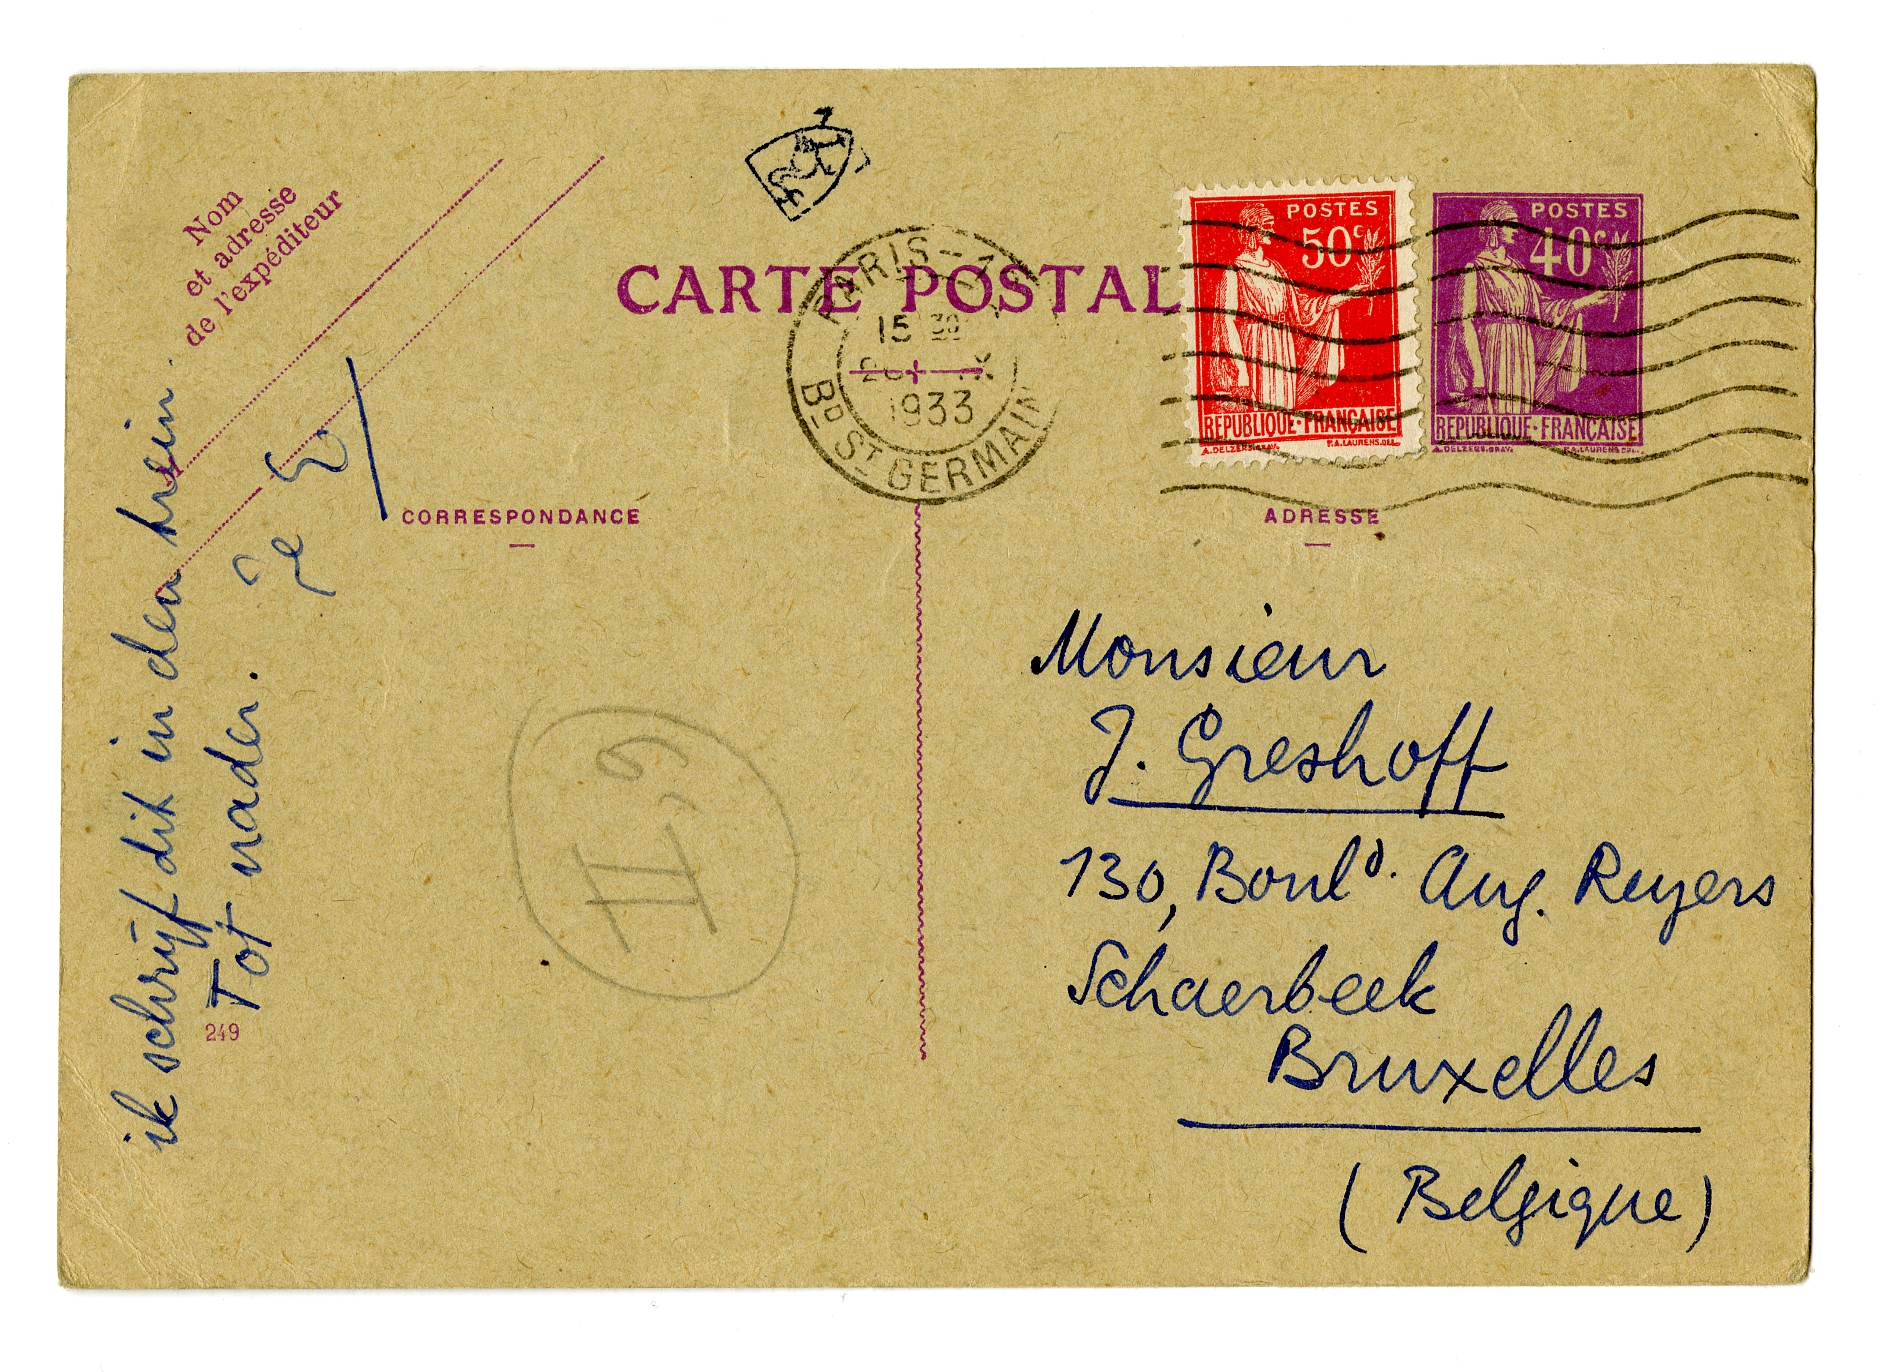 Nom
et adresse
de l'expéditeur
CARTE POSTAL
PARIS
15 30
1933
BD ST GERMAIN
POSTES
50c
REPUBLIQUE·FRANÇAISE
A.DELZERS.GRAV. P.A.LAURENS.DEL.
POSTES
40c
REPUBLIQUE·FRANÇAISE
A.DELZERS.GRAV. P.A.LAURENS.DEL.
CORRESPONDANCE
ADRESSE
ik schrijf dit in den trein.
Tot nader. Je E
249
II
Monsieur
J. Greshoff
130, Bould. Aug. Reyers
Schaerbeek
Bruxelles
(Belgique)